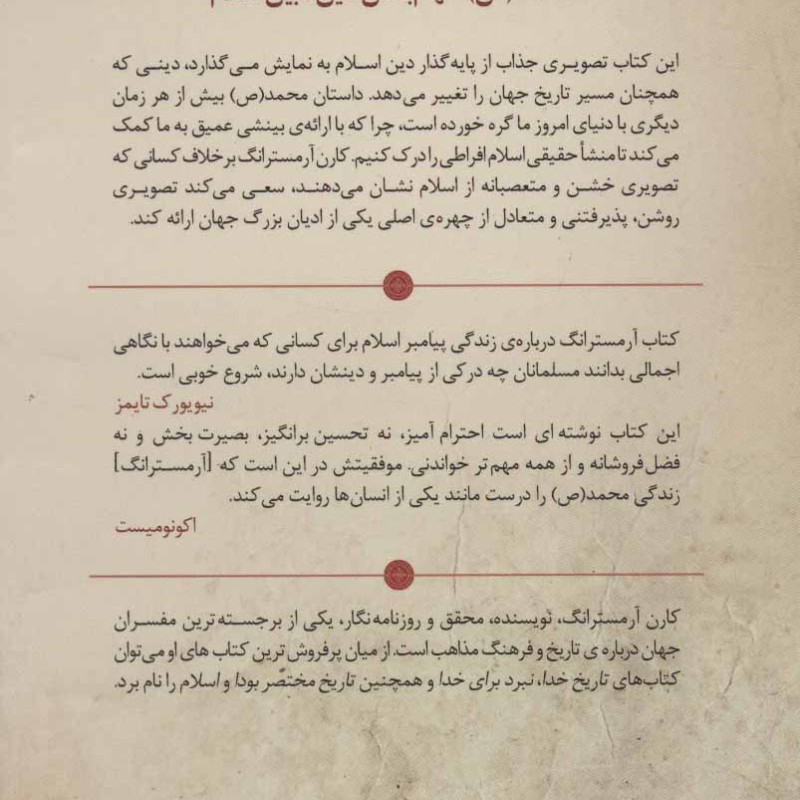 این کتاب تصویری جذاب از پایه‌گذار دین اسلام به نمایش می‌گذارد، دینی که
همچنان مسیر تاریخ جهان را تغییر می‌دهد. داستان محمد(ص) بیش از هر زمان
دیگری با دنیای امروز ما گره خورده است، چرا که با ارائه‌ی بینشی عمیق به ما کمک
می‌کند تا منشأ حقیقی اسلام افراطی را درک کنیم. کارن آرمسترانگ برخلاف کسانی که
تصویری خشن و متعصبانه از اسلام نشان می‌دهند، سعی می‌کند تصویری
روشن، پذیرفتنی و متعادل از چهره‌ی اصلی یکی از ادیان بزرگ جهان ارائه کند.
کتاب آرمسترانگ درباره‌ی زندگی پیامبر اسلام برای کسانی که می‌خواهند با نگاهی
اجمالی بدانند مسلمانان چه درکی از پیامبر و دینشان دارند، شروع خوبی است.
نیویورک تایمز
این کتاب نوشته ای است احترام آمیز، نه تحسین برانگیز، بصیرت بخش و نه
فضل‌فروشانه و از همه مهم‌تر خواندنی. موفقیتش در این است که [آرمسترانگ]
زندگی محمد(ص) را درست مانند یکی از انسان‌ها روایت می‌کند.
اکونومیست
کارن آرمسترانگ، نویسنده، محقق و روزنامه‌نگار، یکی از برجسته‌ترین مفسران
جهان درباره ی تاریخ و فرهنگ مذاهب است. از میان پرفروش‌ترین کتاب های او می‌توان
کتاب‌های تاریخ خدا، نبرد برای خدا و همچنین تاریخ مختصّر بودا و اسلام را نام برد.